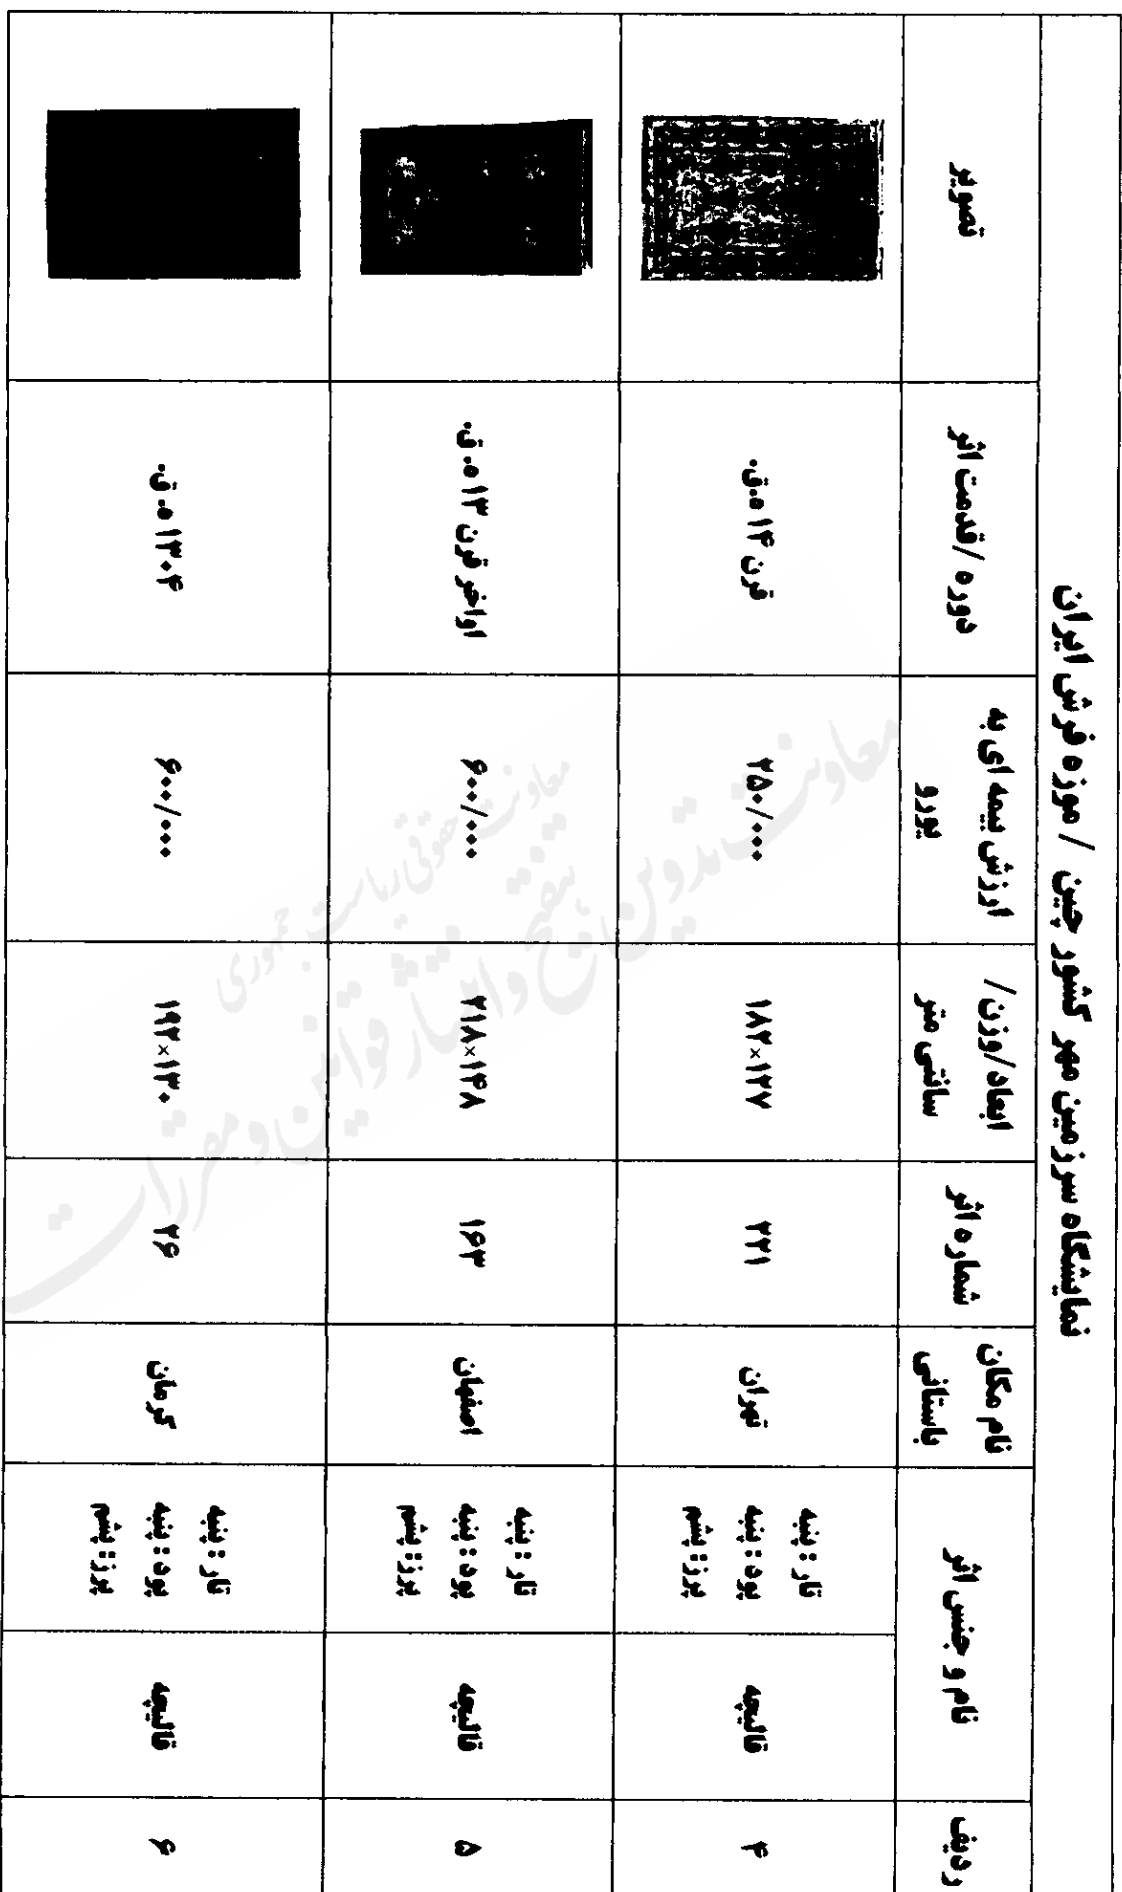 نمایشگاه سرزمین مهر کشور چین / موزه فرش ایران
ردیف
نام و جنس اثر
نام مکان
باستانی
شماره اثر
ابعاد/وزن/
سانتی متر
ارزش بیمه ای به
یورو
دوره /قدمت اثر
تصویر
۴
قالیچه
تار : پنبه
پود : پنبه
پرز : پشم
تهران
۲۲۱
۱۸۲×۱۲۷
۲۵۰/۰۰۰
قرن ۱۴ ه.ق.
۵
قالیچه
تار : پنبه
پود : پنبه
پرز : پشم
اصفهان
۱۶۳
۲۱۸×۱۴۸
۶۰۰/۰۰۰
اواخر قرن ۱۳ ه.ق.
۶
قالیچه
تار : پنبه
پود : پنبه
پرز : پشم
کرمان
۲۶
۱۹۲×۱۳۰
۶۰۰/۰۰۰
۱۳۰۴ ه.ق.
معاونت تدوین، تنقیح و انتشار قوانین و مقررات
معاونت حقوقی ریاست جمهوری